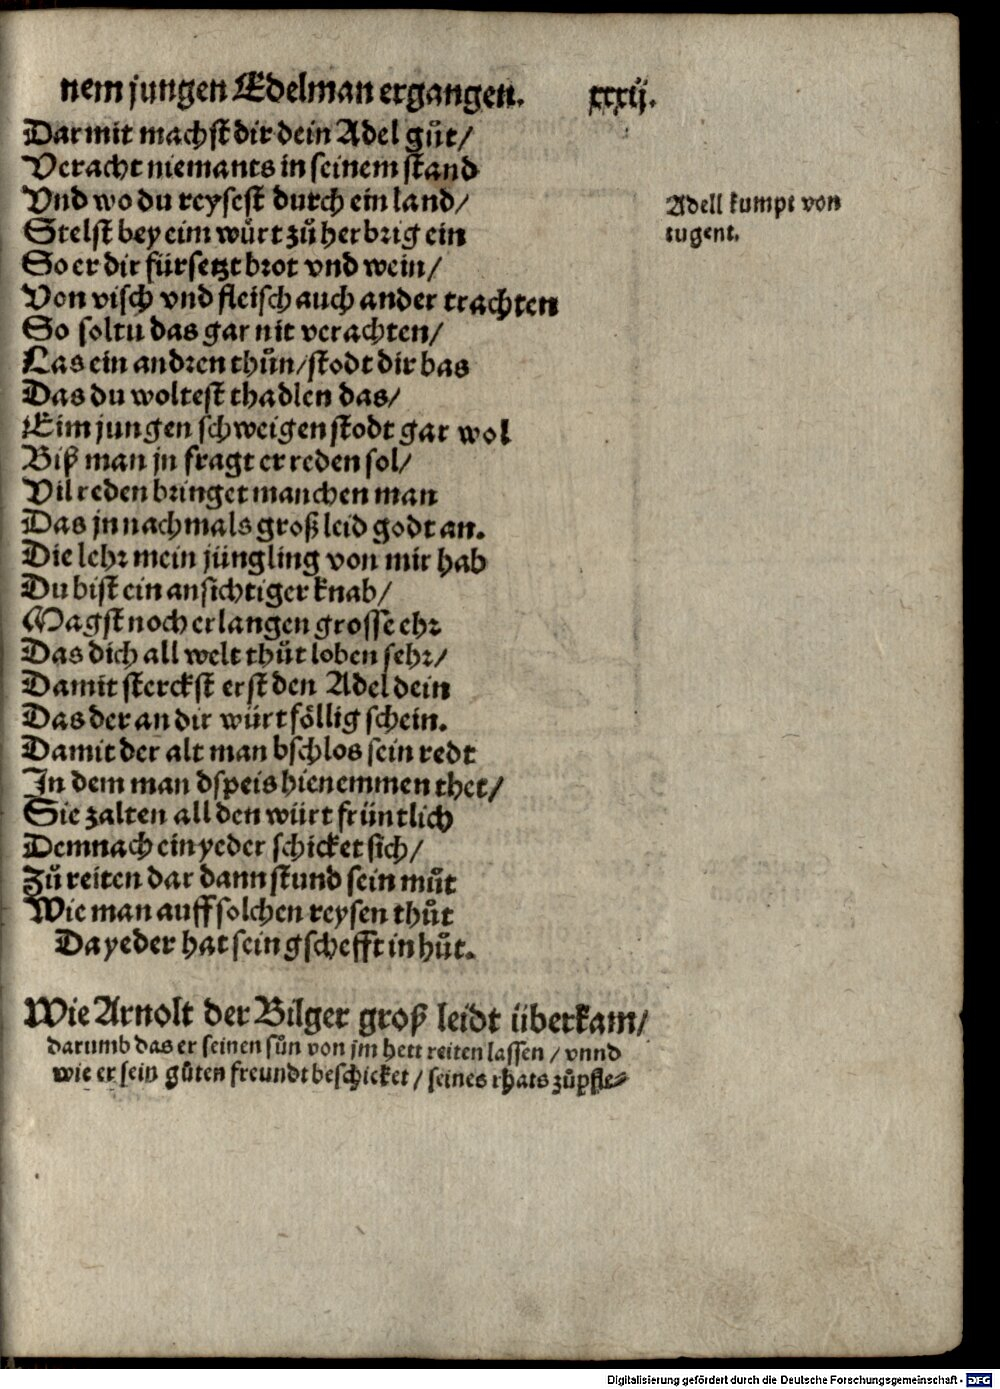 nem jungen Edelman ergangen. xxxij.
Darmit machst dir dein Adel gůt/
Veracht niemants in seinem stand
Vnd wo du reysest durch ein land/
Adell kumpt von
tugent.
Stelst bey eim würt zů herbrig ein
So er dir fürsetzt brot vnd wein/
Von visch vnd fleisch auch ander trachten
So soltu das gar nit verachten/
Las ein andren thůn/stodt dir bas
Das du woltest thadlen das/
Eim jungen schweigen stodt gar wol
Biß man jn fragt er reden sol/
Vil reden bringet manchen man
Das jn nachmals groß leid godt an.
Die lehr mein jüngling von mir hab
Du bist ein ansichtiger knab/
Magst noch erlangen grosse ehr
Das dich all welt thůt loben sehr/
Damit sterckst erst den Adel dein
Das der an dir würt föllig schein.
Damit der alt man bschlos sein redt
In dem man dspeis hienemmen thet/
Sie zalten all den würt früntlich
Demnach ein yeder schicket sich/
Zů reiten dar dann stund sein můt
Wie man auff solchen reysen thůt
Da yeder hat sein gschefft in hůt.
Wie Arnolt der Bilger groß leidt überkam/
darumb das er seinen sůn von jm hett reiten lassen / vnnd
wie er sein gůten freundt beschicket / seines rhats zůpfle⸗
Digitalisierung gefördert durch die Deutsche Forschungsgemeinschaft - DFG